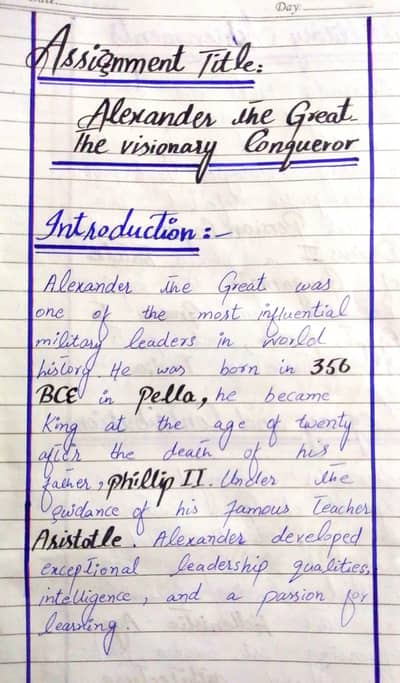 Day:
Assignment Title:
Alexander the Great.
The visionary Conqueror
Introduction :-
Alexander the Great was
one of the most influential
military leaders in world
history. He was born in 356
BCE in Pella, he became
King at the age of twenty
after the death of his
father, Phillip II. Under the
guidance of his famous Teacher
Aristotle. Alexander developed
exceptional leadership qualities,
intelligence, and a passion for
learning.